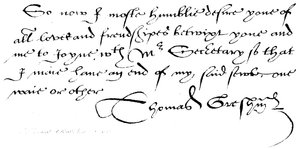 So now I moste humblie desire youe of
all love and frendshipes betwixt youe and
me to Joyne wth Mr Secretary so that
I maie have an end of my said sewte one
waie or other
Thomas Gresham